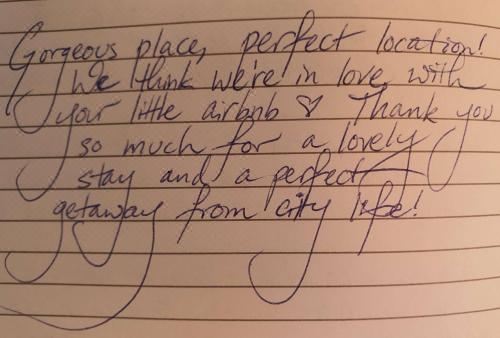 Gorgeous place, perfect location!
We think we're in love with
your little airbnb ♡ Thank you
so much for a lovely
stay and a perfect
getaway from city life!